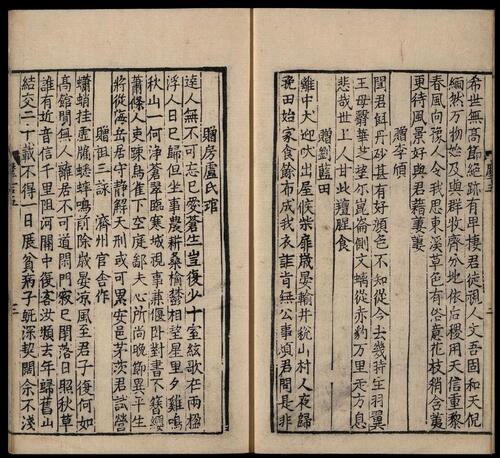 希世無高節絕跡有卑棲君徒視人文吾固和天倪
緬然万物始及與群牧齊分地依后稷用天信重黎
春風向豫人令我思東溪草色有佳意花枝稍含荑
更待風景好與君藉萋萋
贈李頎
聞君餌丹砂甚有好顏色不知從今去幾時生羽翼
王母翳華芝望尔崑崙側文螭從赤豹万里方息
悲哉世上人甘此羶腥食
贈劉藍田
籬中犬迎吠出屋候柴扉歲晏輸井稅山村人夜歸
晚田始家食餘布成我衣詎肯無公事煩君問是非
贈房盧氏琯
達人無不可忘己安蒼生豈復少十室絃歌在兩楹
浮人日已歸但坐事農耕桑榆鬱相望邑里多雞鳴
秋山一何淨蒼翠臨寒城視事兼偃臥對書不簪纓
蕭條人吏疎鳥雀下空庭鄙夫心所尚晚節異平生
將從海岳居守靜解天刑或可累安邑茅茨君試營
贈祖三詠 濟州官舍作
蠨蛸挂虛牖蟋蟀鳴前除歲晏涼風至君子復何如
高館闃無人離居不可道閑門寂已閉落日照秋草
雖有近音信千里阻河關中復客汝潁去年歸舊山
結交二十載不得一日展貧病子既深契闊余不淺